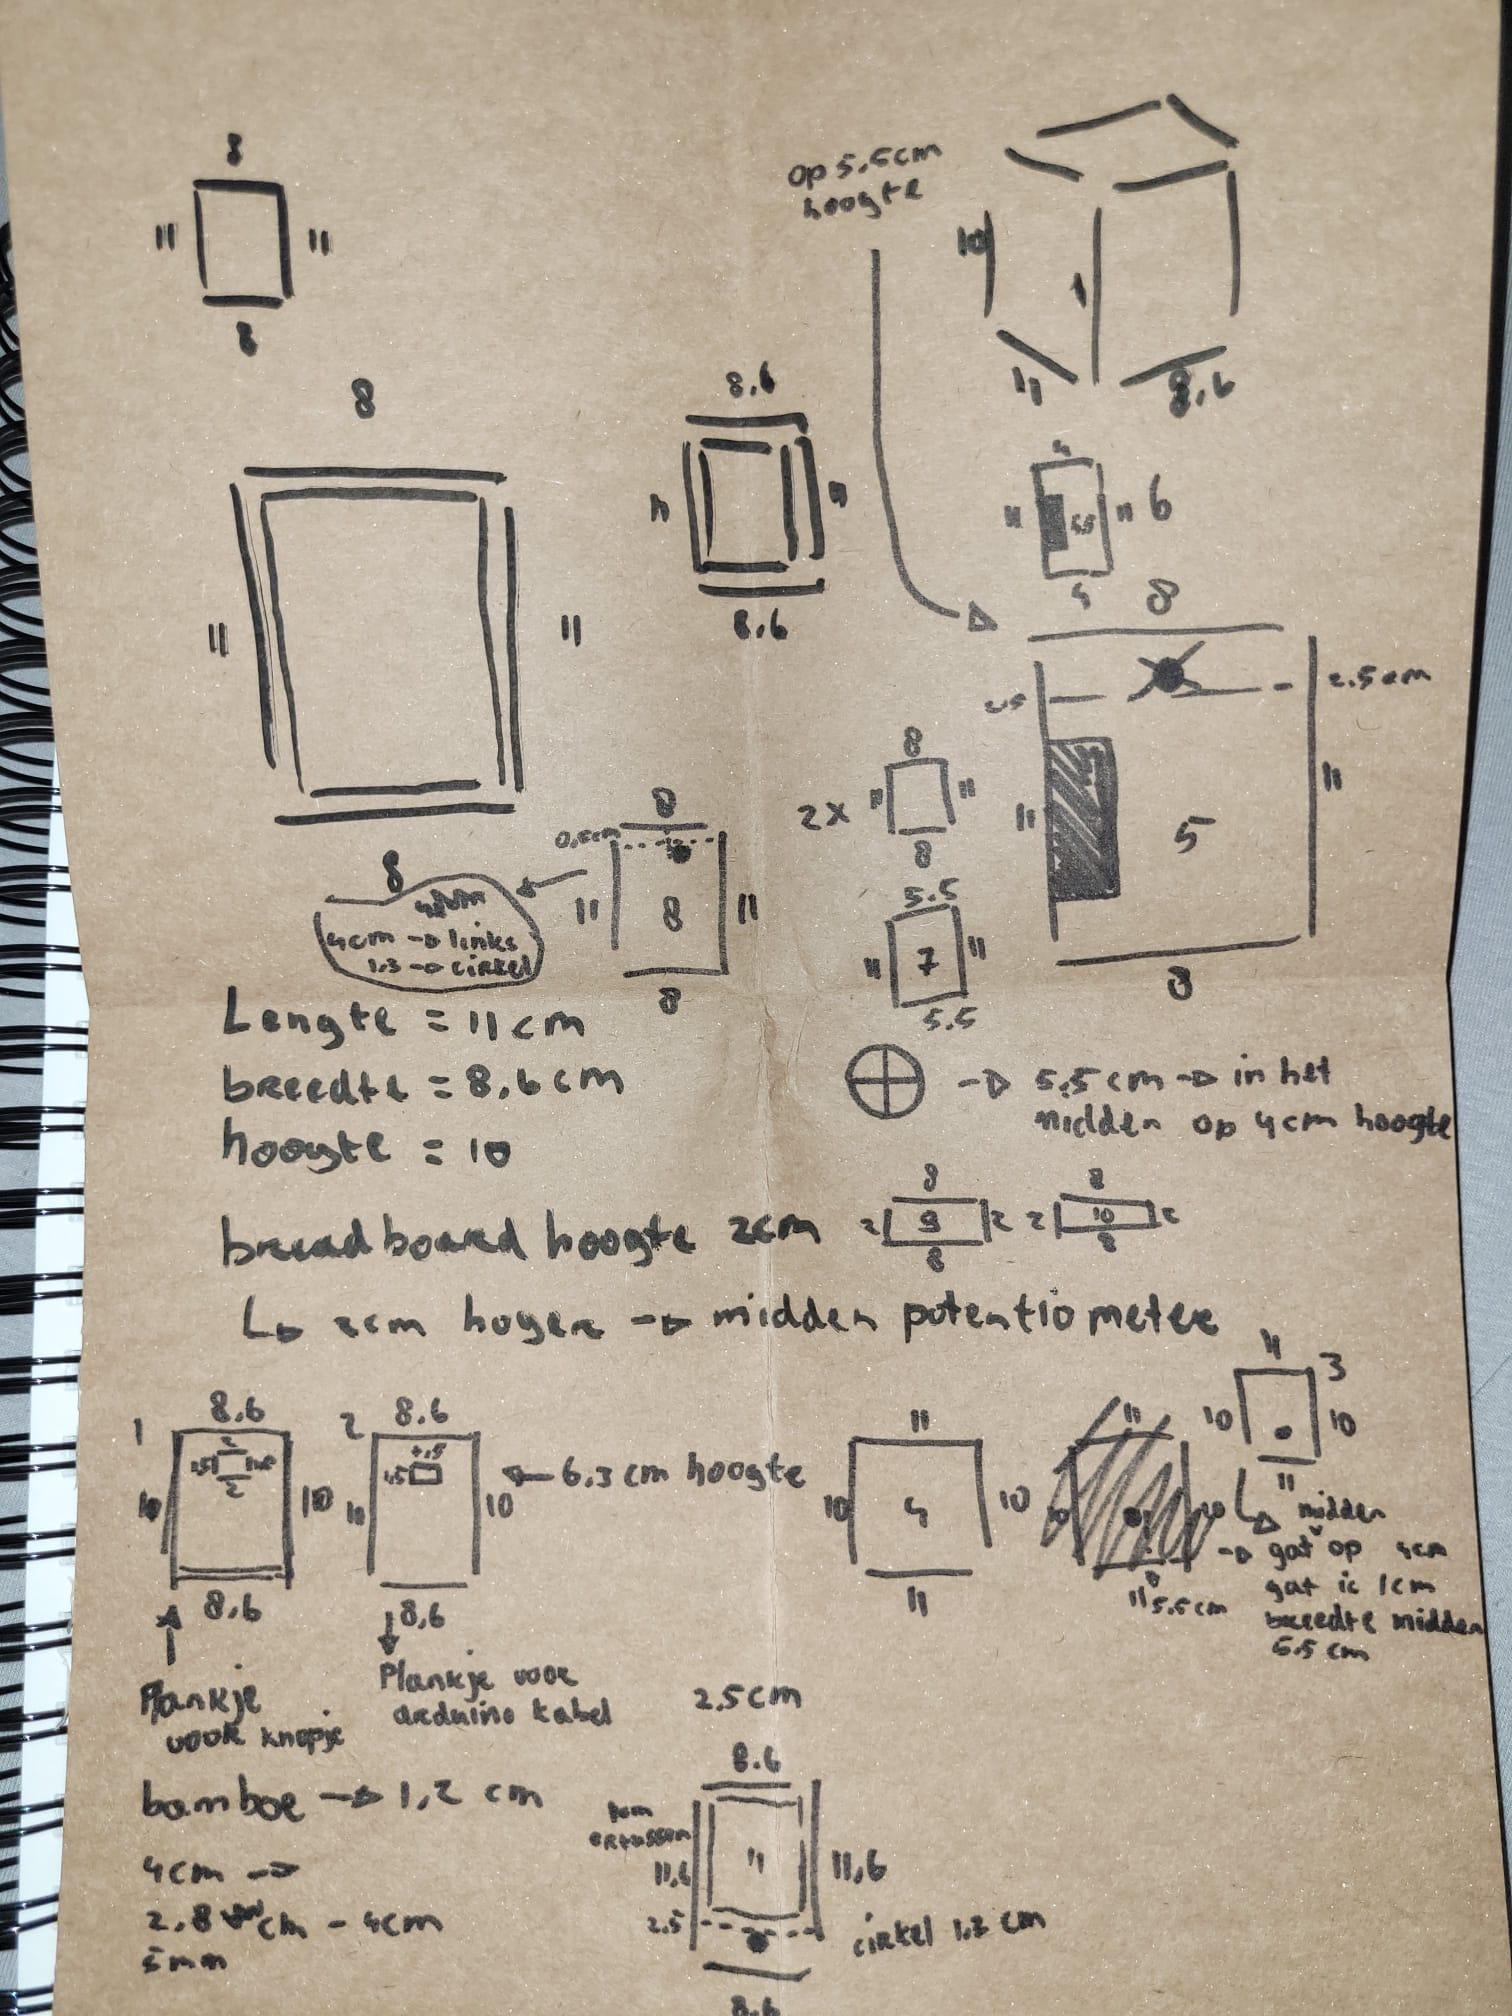 8
11 11
8
op 5.5cm
hoogte
10
11
8.6
8
8.6
11 11
8.6
11 11 6
8
2.5cm
11 11
5
8
11 11
8
8
2x 11 11
8
5.5
11 7 11
5.5
8
11 8 11
8
4cm → links
1.3 → cirkel
Lengte = 11cm
breedte = 8,6cm
hoogte = 10
⊕ → 5.5cm → in het
midden op 4cm hoogte
breadboard hoogte 2cm
8 8
2 9 2 2 10 2
8 8
↳ 2cm hoger → midden potentiometer
1 8.6
2
2
10 10
8.6
Plankje
voor knopje
2 8.6
11 10
← 6.3cm hoogte
8,6
Plankje voor
arduino kabel
11
10 4 10
11
11
11 5.5cm
11 3
10 10
11
midden
→ gat op 4cm
gat is 1cm
breedte midden
5.5 cm
2.5cm
bamboe → 1,2 cm
4cm →
2.8 cm - 4cm
5mm
8.6
ertussen
11.6 11 11,6
2.5
cirkel 1.3 cm
8.6